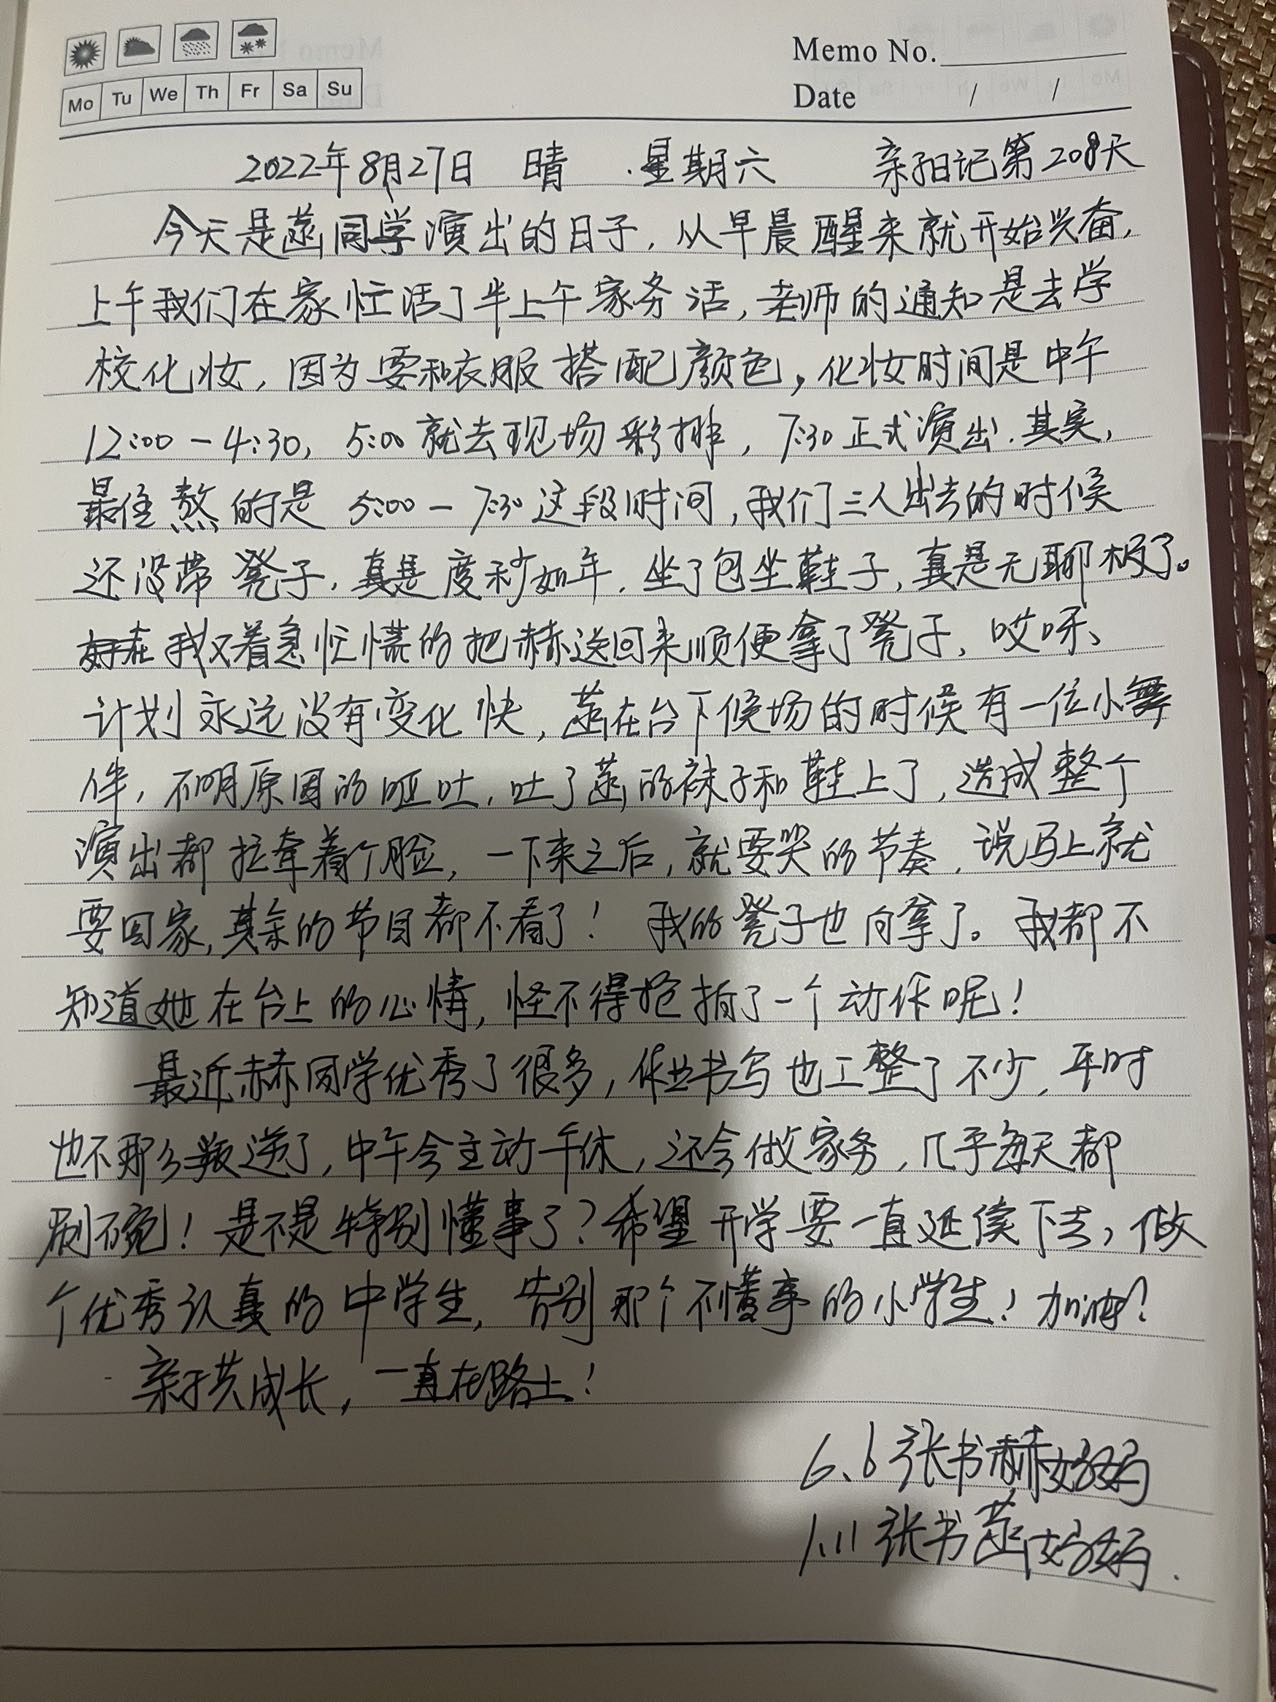 Memo No.
Mo Tu We Th Fr Sa Su
Date / /
2022年8月27日 晴 星期六 亲子日记第208天
今天是菡同学演出的日子,从早晨醒来就开始兴奋,
上午我们在家忙活了半上午家务活,老师的通知是去学
校化妆,因为要和衣服搭配颜色,化妆时间是中午
12:00-4:30,5:00就去现场彩排,7:30正式演出.其实,
最难熬的是5:00-7:30这段时间,我们三人出去的时候
还没带凳子,真是度秒如年,坐了包坐鞋子,真是无聊极了。
好在我又着急忙慌的把赫送回来顺便拿了凳子,哎呀、
计划永远没有变化快,菡在台下候场的时候有一位小舞
伴,不明原因的呕吐,吐了菡的袜子和鞋上了,造成整个
演出都拉耷着个脸,一下来之后,就要哭的节奏,说马上就
要回家,其余的节目都不看了!我的凳子也白拿了。我都不
知道她在台上的心情,怪不得抢拍了一个动作呢!
最近赫同学优秀了很多,作业书写也工整了不少,平时
也不那么叛逆了,中午会主动午休,还会做家务,几乎每天都
刷碗!是不是特别懂事了?希望开学要一直延续下去,做
个优秀认真的中学生,告别那个不懂事的小学生!加油?
亲子共成长,一直在路上!
6.6张书赫妈妈
1.11张书菡妈妈.